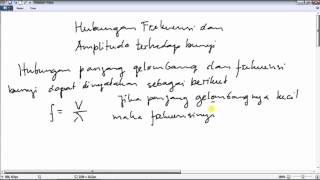 Hubungan Frekuensi dan
Amplitudo terhadap bunyi
Hubungan panjang gelombang dan frekuensi
bunyi dapat dinyatakan sebagai berikut
f = V/λ
jika panjang gelombangnya kecil
maka frekuensinya